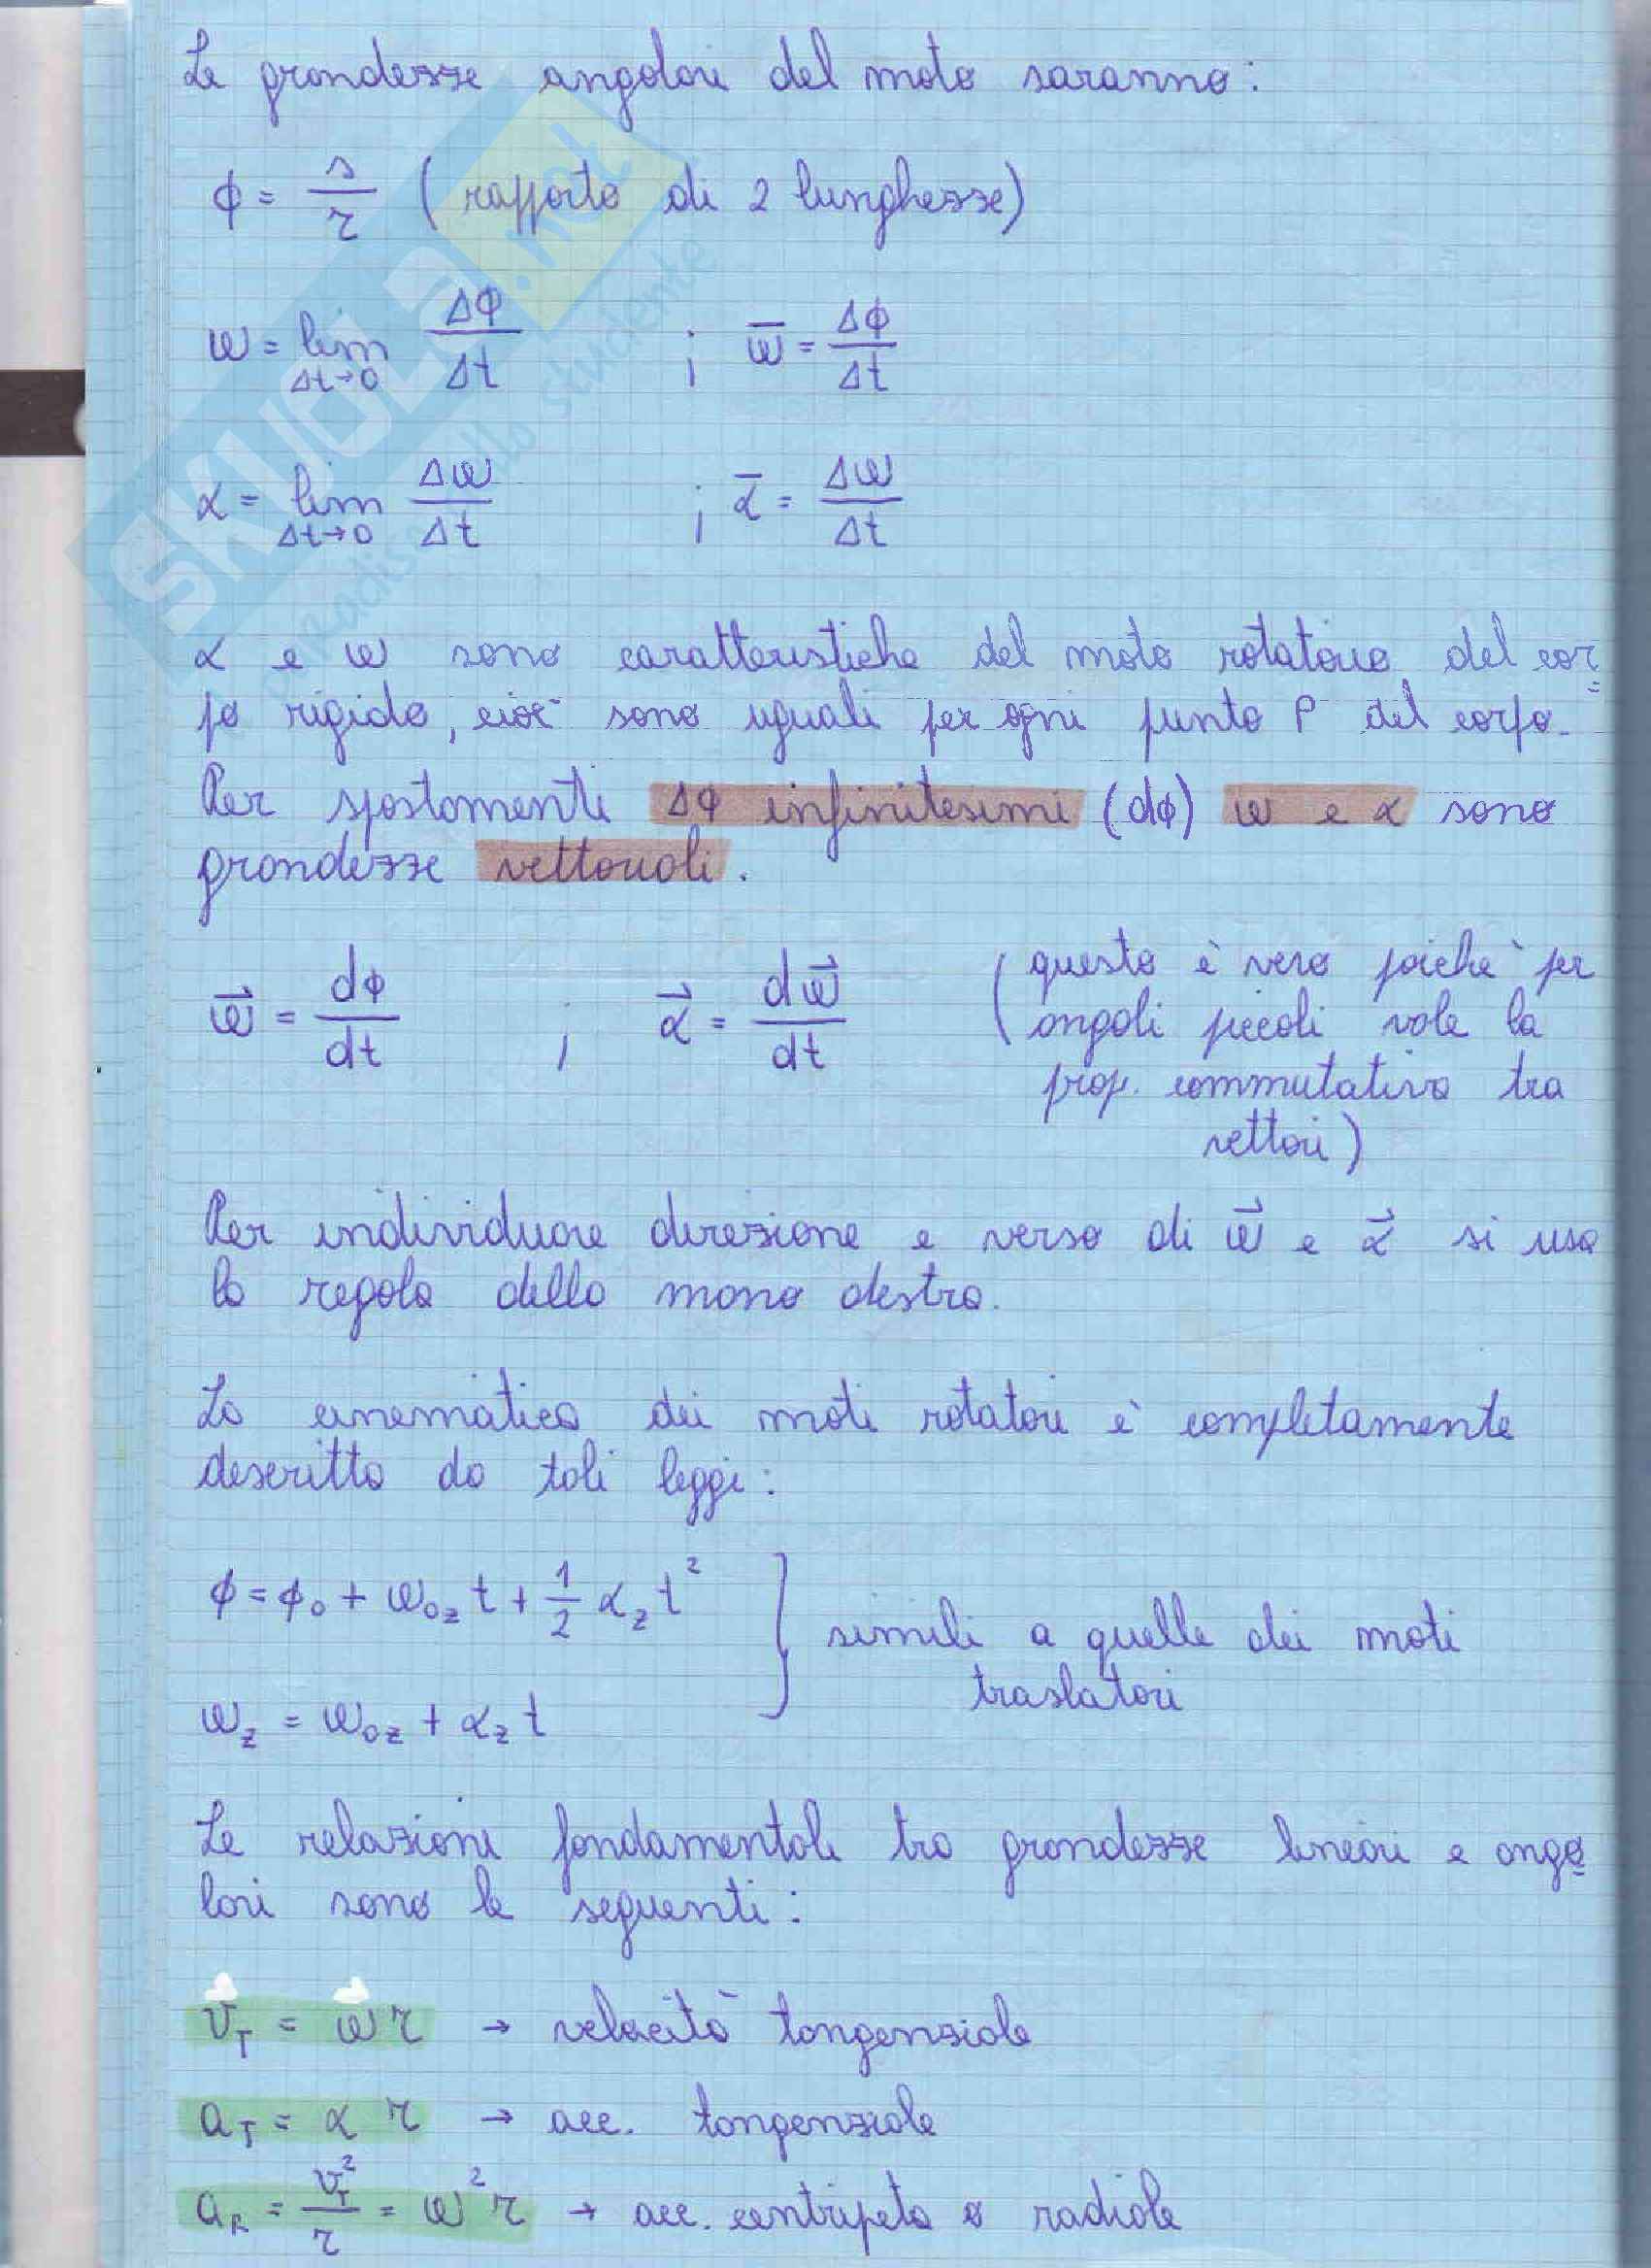 Le grandezze angolari del moto saranno:
ϕ = s/r (rapporto di 2 lunghezze)
ω = lim Δt→0 Δϕ/Δt ; ω̅ = Δϕ/Δt
α = lim Δt→0 Δω/Δt ; α̅ = Δω/Δt
α e ω sono caratteristiche del moto rotatorio del cor=
po rigido, cioè sono uguali per ogni punto P del corpo.
Per spostamenti Δϕ infinitesimi (dϕ) ω e α sono
grandezze vettoriali.
ω⃗ = dϕ/dt ; α⃗ = dω⃗/dt (questo è vero poichè per
angoli piccoli vale la
prop. commutativa tra
vettori)
Per individuare direzione e verso di ω⃗ e α⃗ si usa
la regola della mano destra.
La cinematica dei moti rotatori è completamente
descritta da tali leggi:
ϕ = ϕ₀ + ω₀z t + 1/2 αz t²
} simili a quelle dei moti
traslatori
ωz = ω₀z + αz t
Le relazioni fondamentali tra grandezze lineari e ango
lari sono le seguenti:
vT = ωr → velocità tangenziale
aT = α r → acc. tangenziale
aR = vT²/r = ω²r → acc. centripeta o radiale
SKUOLA.net
paradiso dello studente